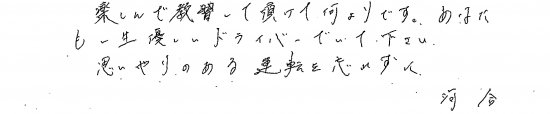 楽しんで教習して頂けて何よりです。あなた
も一生優しいドライバーでいて下さい
思いやりのある運転を忘れずに
河合